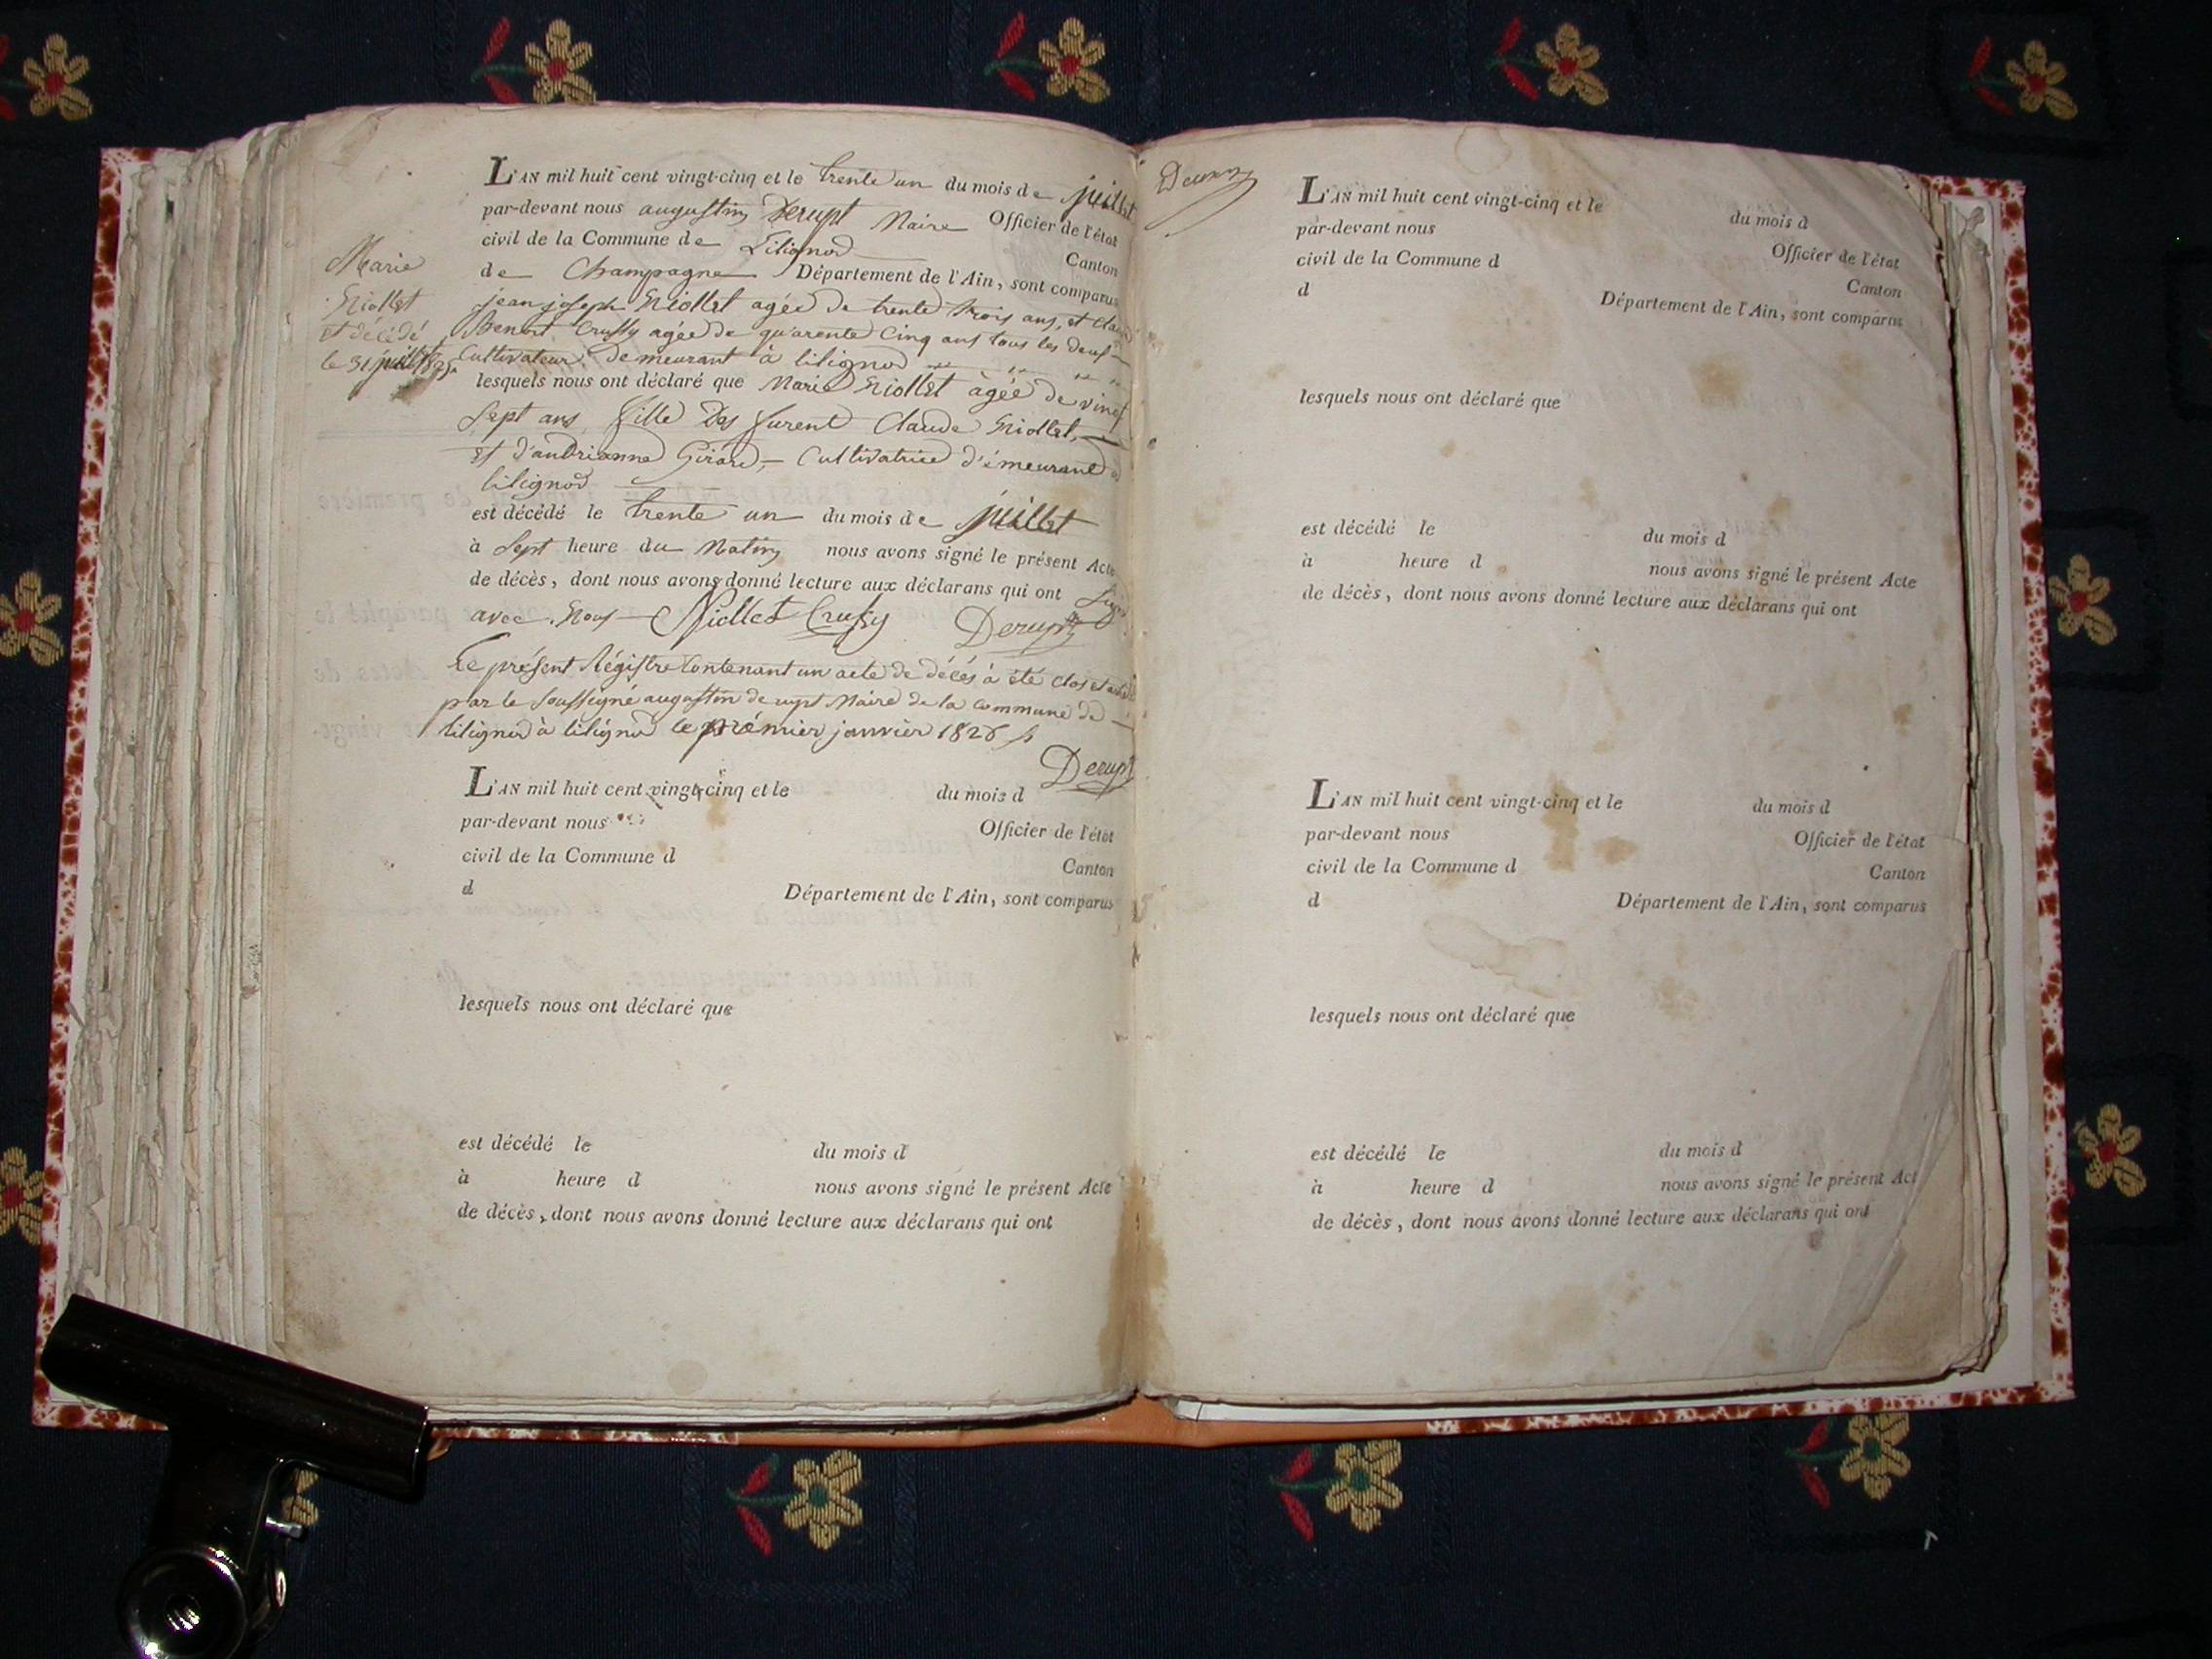 Marie
Niollet
et décédé
le 31 juillet 1825
L'AN mil huit cent vingt-cinq et le trente un du mois de juillet
par-devant nous augustin Derupt Maire Officier de l'état
civil de la Commune de Lilignod Canton
de Champagne Département de l'Ain, sont comparus
jean joseph Niollet agée de trente trois ans, et Claude
Benoit Crussy agée de quarente Cinq ans tous les deux
Cultivateur demeurant à lilignod
lesquels nous ont déclaré que Marie Niollet àgée de vingt
Sept ans, fille des furent Claude Niollet,
et d'andrianne Girard, Cultivatrice d'émeurant à
lilignod
est décédé le trente un du mois de juillet
à Sept heure du Matin nous avons signé le présent Acte
de décès, dont nous avons donné lecture aux déclarans qui ont Signé
avec Nous Niollet Crussy Derupt
Le présent Régistre Contenant un acte de décés à été clos et
par le Soussigné augustin derupt Maire de la commune de
lilignod à lilignod le prémier janvier 1826
Derupt
L'AN mil huit cent vingt-cinq et le du mois d
par-devant nous Officier de l'état
civil de la Commune d Canton
d Département de l'Ain, sont comparus
lesquels nous ont déclaré que
est décédé le du mois d
à heure d nous avons signé le présent Acte
de décès, dont nous avons donné lecture aux déclarans qui ont
L'AN mil huit cent vingt-cinq et le du mois d
par-devant nous Officier de l'état
civil de la Commune d Canton
d Département de l'Ain, sont comparus
lesquels nous ont déclaré que
est décédé le du mois d
à heure d nous avons signé le présent Acte
de décès, dont nous avons donné lecture aux déclarans qui ont
L'AN mil huit cent vingt-cinq et le du mois d
par-devant nous Officier de l'état
civil de la Commune d Canton
d Département de l'Ain, sont comparus
lesquels nous ont déclaré que
est décédé le du mois d
à heure d nous avons signé le présent Act
de décès, dont nous avons donné lecture aux déclarans qui ont